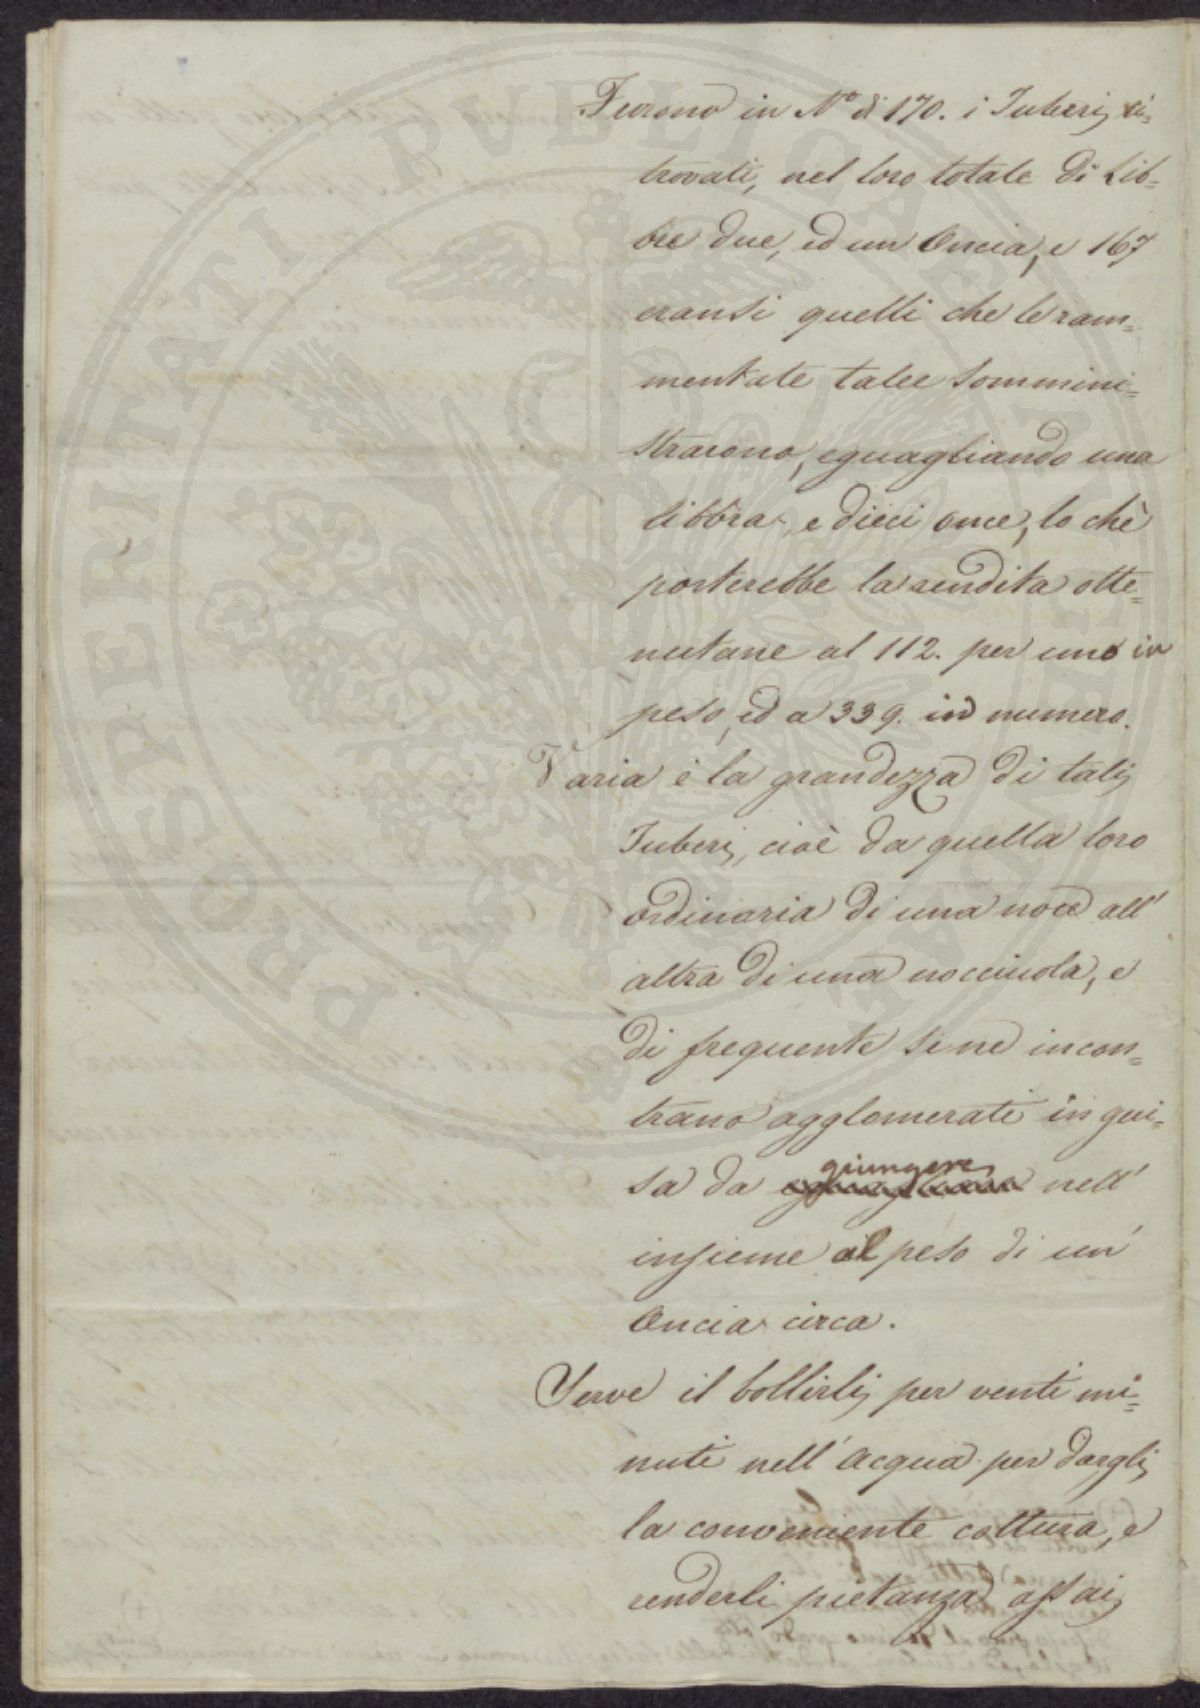 Furono in N.º di 170. i Tuberi, ri=
trovati, nel loro totale di Lib=
bre due, ed un Oncia, e 167
eransi quelli che le ram=
mentate talee sommini=
strarono, eguagliando una
libbra, e dieci once, lo chè
porterebbe la rendita otte=
nutane al 112. per uno in
peso, ed a 339. in numero.
Varia è la grandezza di tali
Tuberi, cioè da quella loro
ordinaria di una noce all'
altra di una nocciuola, e
di frequente se ne incon=
trano agglomerati in gui=
sa da giungere nell'
insieme al peso di un'
Oncia circa.
Serve il bollirli per venti mi=
nuti nell'Acqua per dargli
la conveniente cottura, e
renderli pietanza assai
PROSPERITATI PUBLICAE AUGENDAE